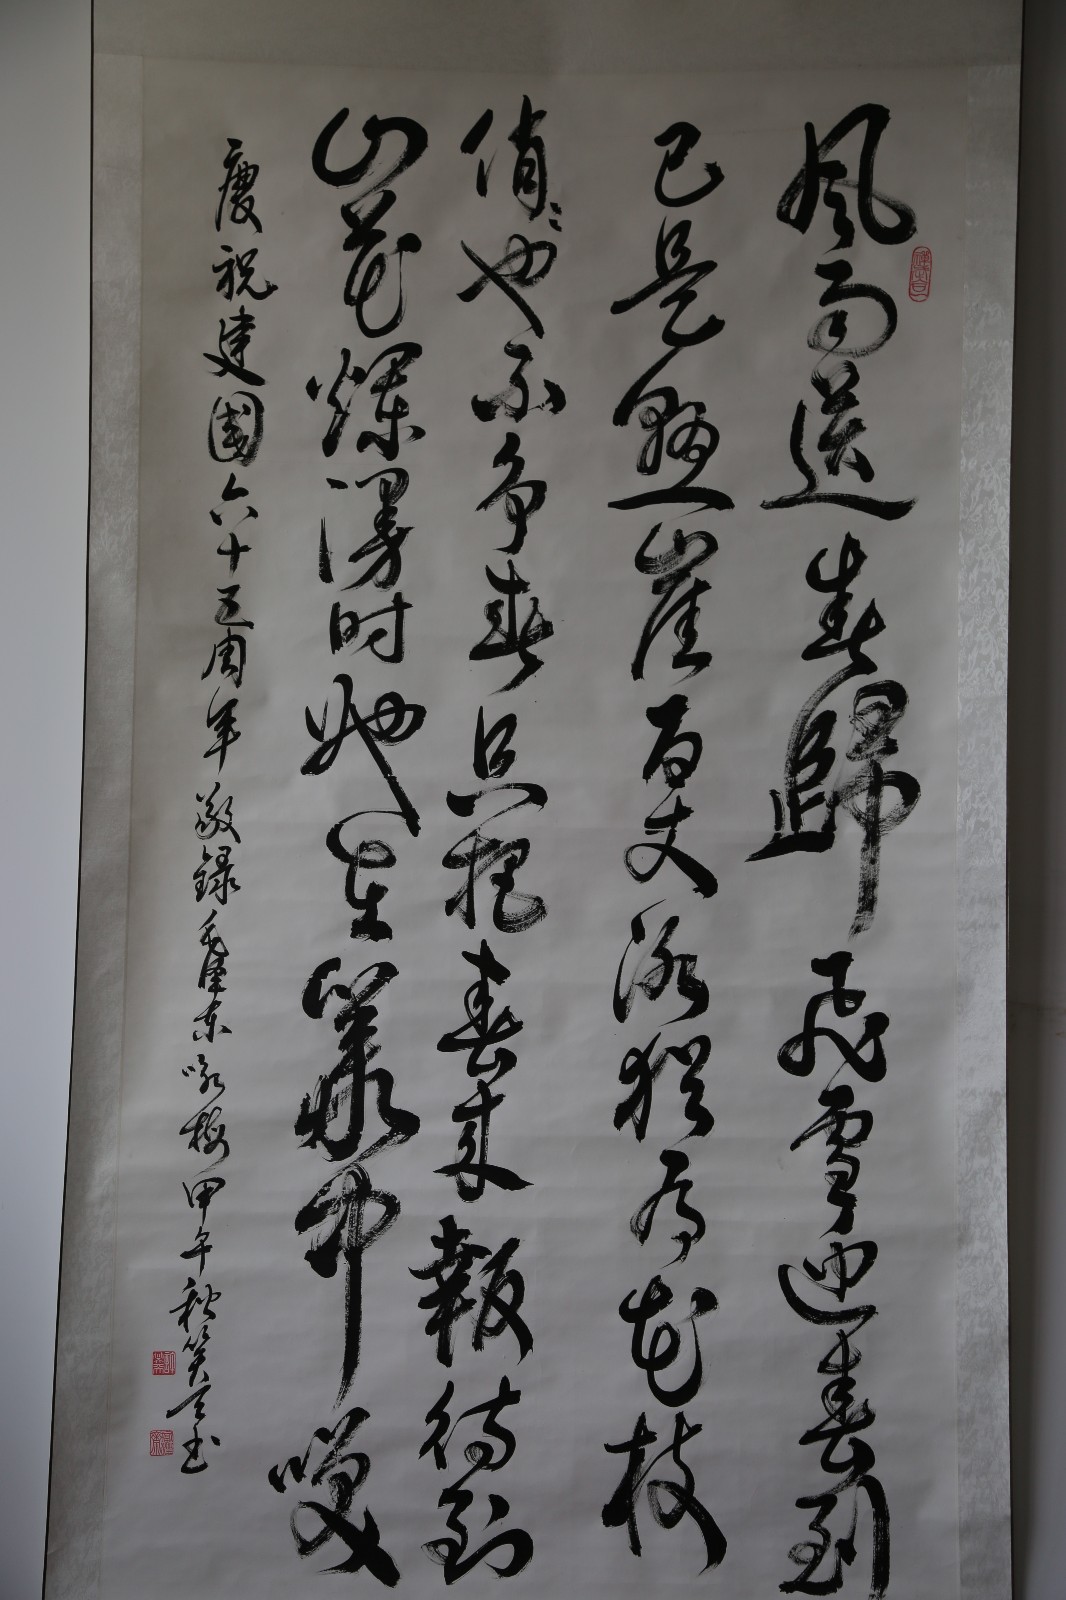 風雨送春歸飛雪迎春到
已是懸崖百丈冰猶有花枝
俏〻也不争春只把春来報待到
山花爛漫时她在叢中咲
慶祝建國六十五周年敬録毛澤東咏梅甲午秋笑书